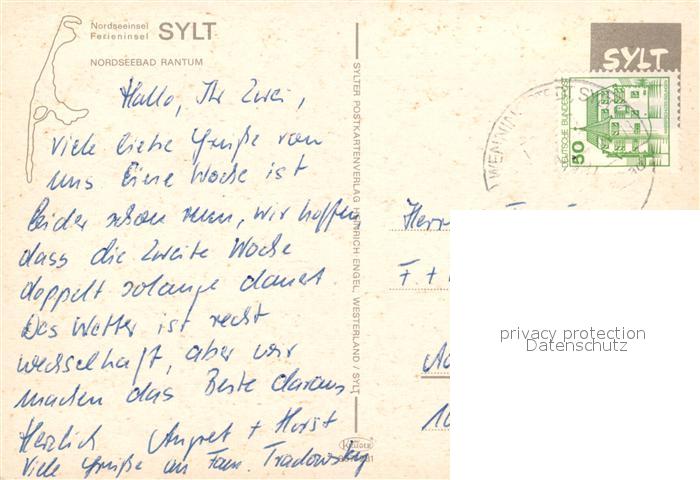 Nordseeinsel
Ferieninsel SYLT
NORDSEEBAD RANTUM
Hallo, Ihr Zwei,
viele liebe Grüße von
uns. Eine Woche ist
leider schon rum, wir hoffen
dass die zweite Woche
doppelt solange dauert.
Das Wetter ist recht
wechselhaft, aber wir
machen das Beste daraus
Herzlich Angret + Horst
Viele Grüße an Fam. Tradowsky
SYLTER POSTKARTENVERLAG HEINRICH ENGEL, WESTERLAND / SYLT
KRÜGER
SYLT
DEUTSCHE BUNDESPOST
50
Herrn
F. +
10
privacy protection
Datenschutz